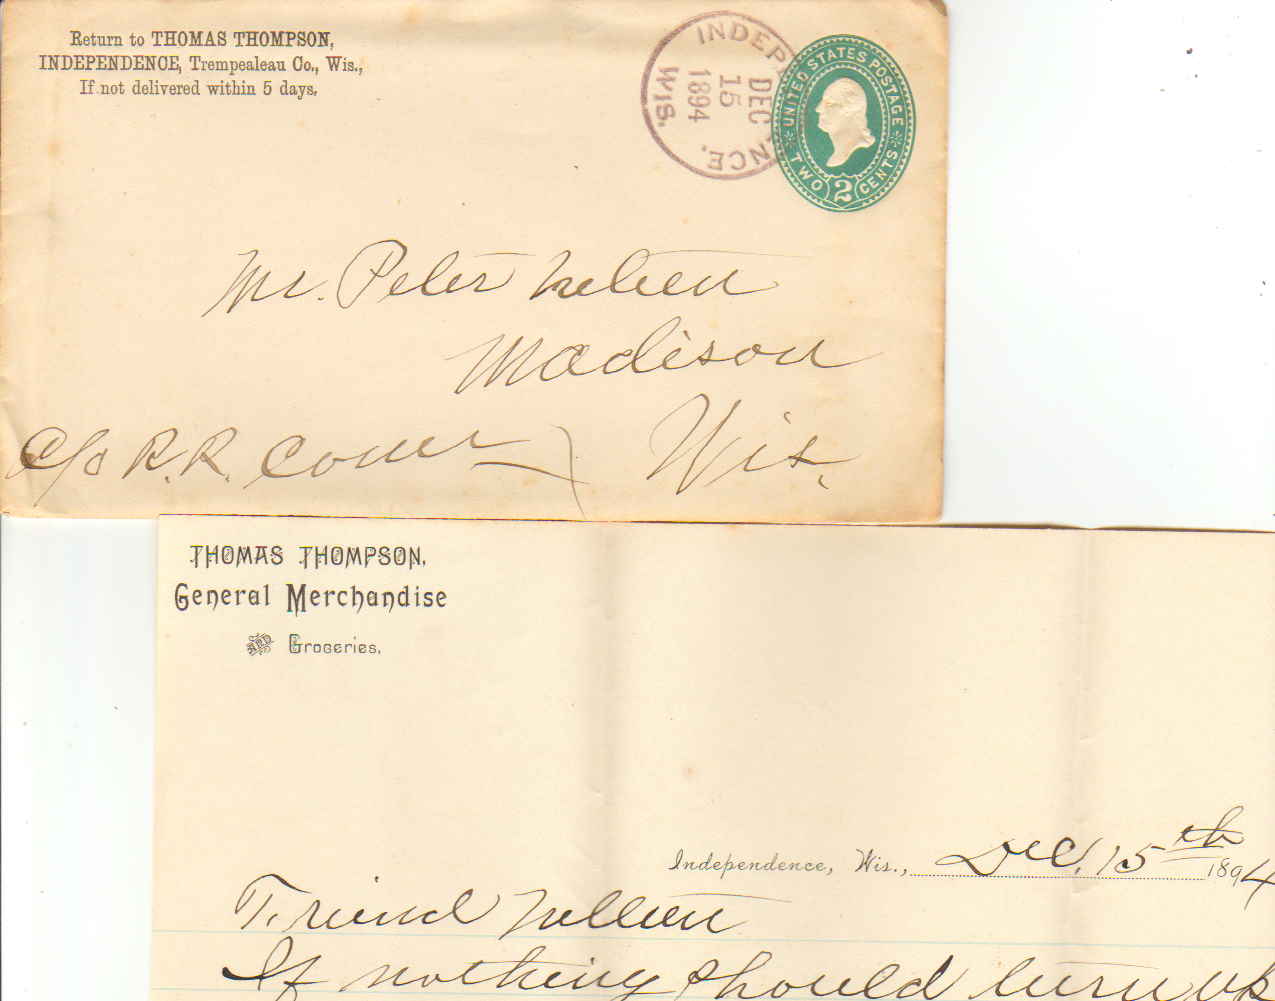 Return to THOMAS THOMPSON,
INDEPENDENCE, Trempealeau Co., Wis.,
If not delivered within 5 days.
INDEPENDENCE.
DEC
15
1894
WIS.
UNITED STATES POSTAGE
TWO 2 CENTS
Mr. Peter
Madison
Wis.
C/o R.R.
THOMAS THOMPSON,
General Merchandise
AND Groceries.
Independence, Wis., Dec. 15th 1894
Friend
If nothing should turn up